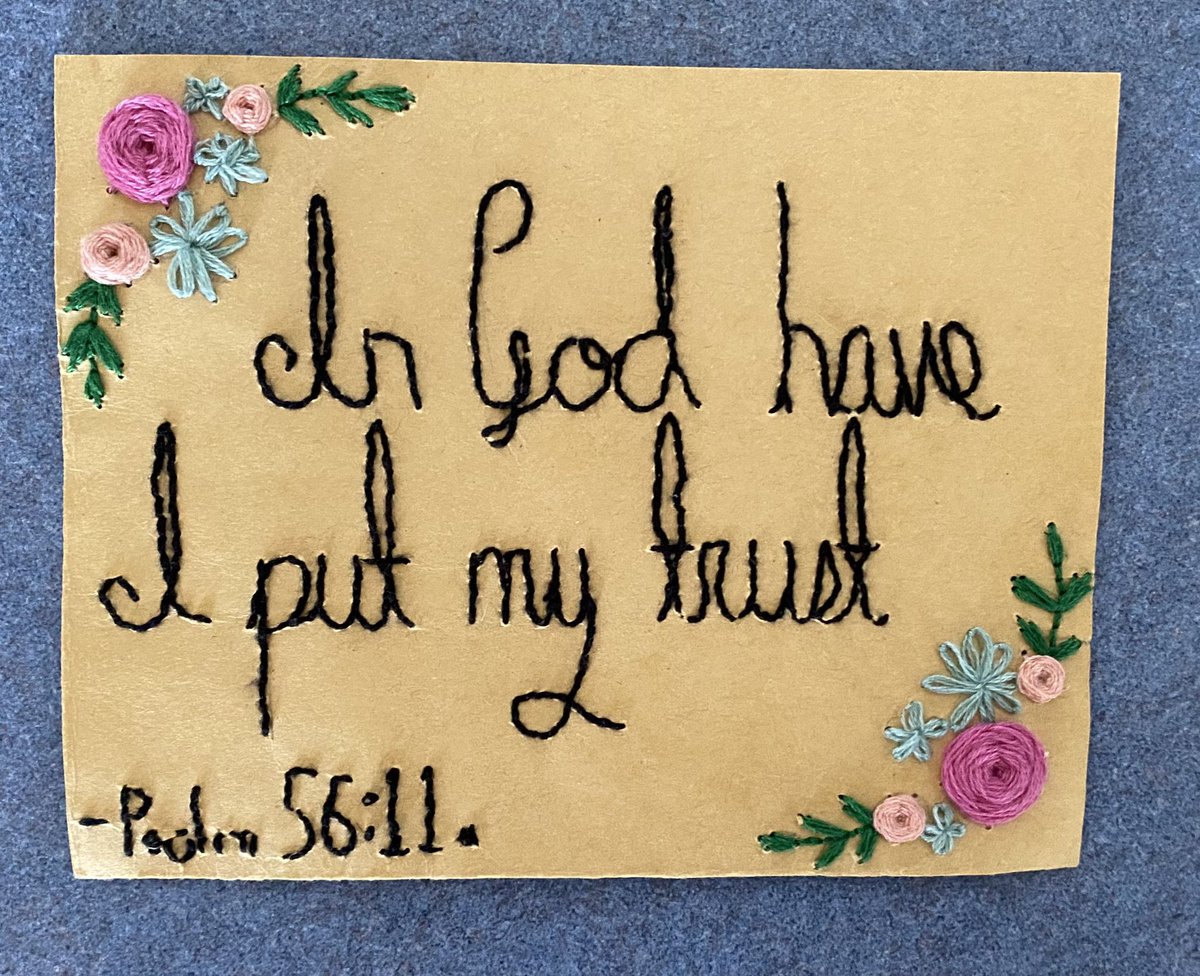 In God have
I put my trust
-Psalm 56:11.